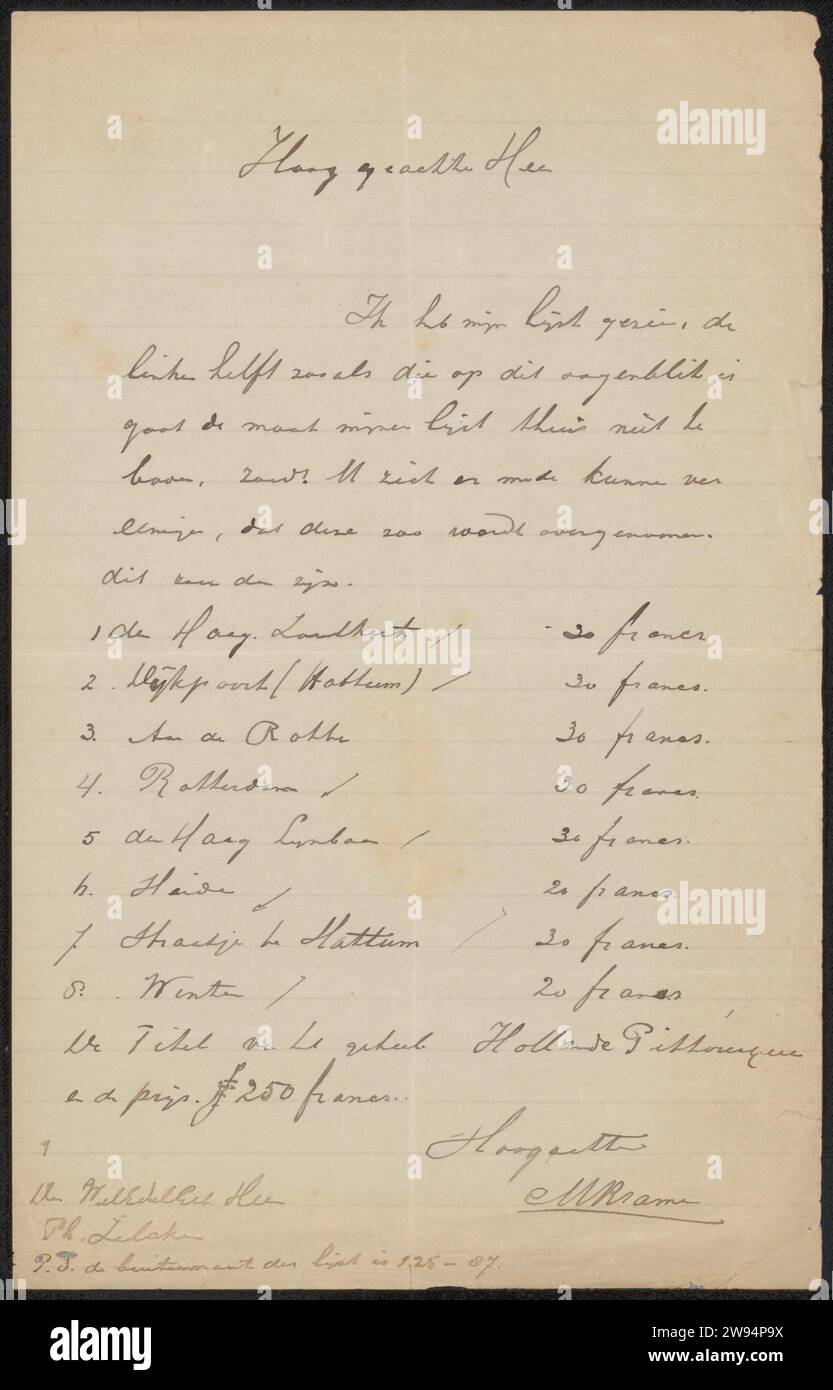 Hoog geachte Heer
Ik heb mijn lijst gezien, de
linker helft zooals die op dit oogenblik is
gaat de maat mijner lijst thuis niet te
boven, zoudt U zich er mede kunnen ver
eenigen, dat deze zoo wordt overgenomen.
dit zou dan zijn.
1 den Haag. /  30 francs
2. Dijkpoort (Hattum) /  30 francs.
3. Aan de Rotte  30 francs.
4. Rotterdam /  30 francs.
5 den Haag Lijnbaan /  30 francs.
6. Heide /  20 francs.
7. Straatje te Hattum /  30 francs.
8. Winter /  20 francs
De Titel van het geheel Hollande Pittoresque
en de prijs. 250 francs.
Hoogachtend
MKramer
Den WelEdelGeb Heer
Ph. Zilcken
P.S. de buitenmaat der lijst is 125 – 87.
alamy
Image ID: 2W94P9X
www.alamy.com